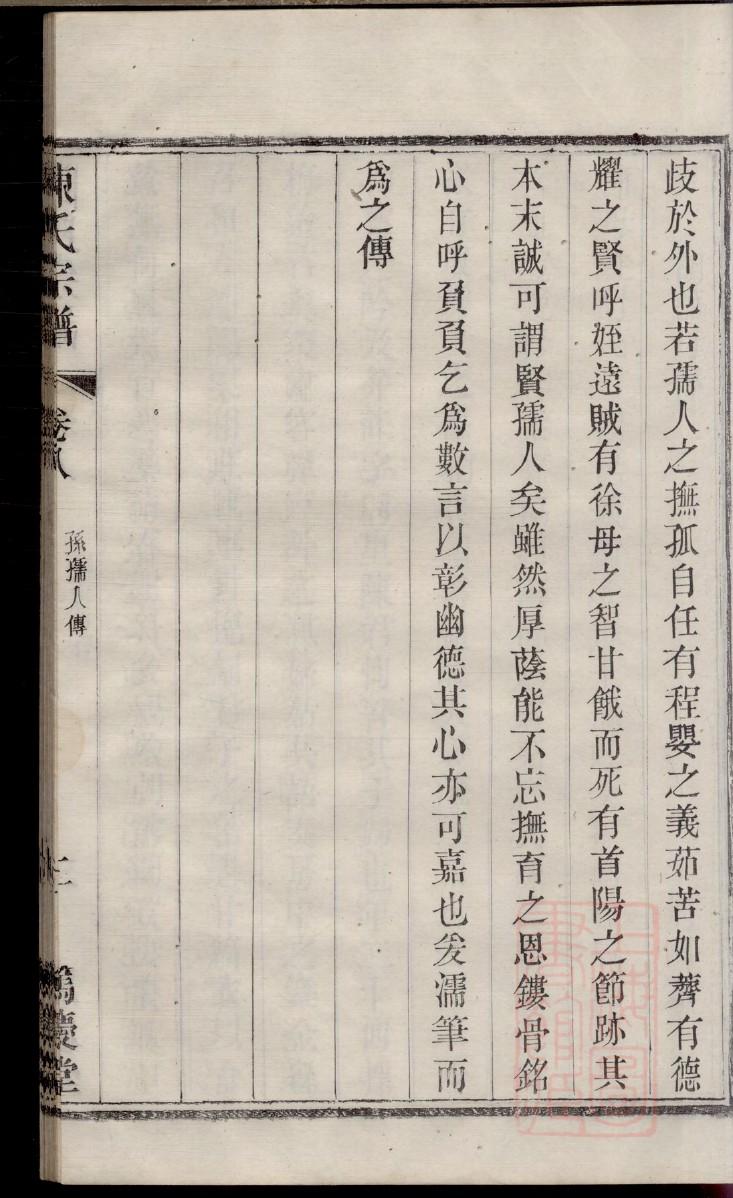 歧於外也若孺人之撫孤自任有程嬰之義茹苦如薺有德
耀之賢呼姪遠賊有徐母之智甘餓而死有首陽之節跡其
本末誠可謂賢孺人矣雖然厚蔭能不忘撫育之恩鏤骨銘
心自呼負負乞爲數言以彰幽德其心亦可嘉也爰濡筆而
爲之傳
陳氏宗譜
卷八
孫孺人傳
篤慶堂